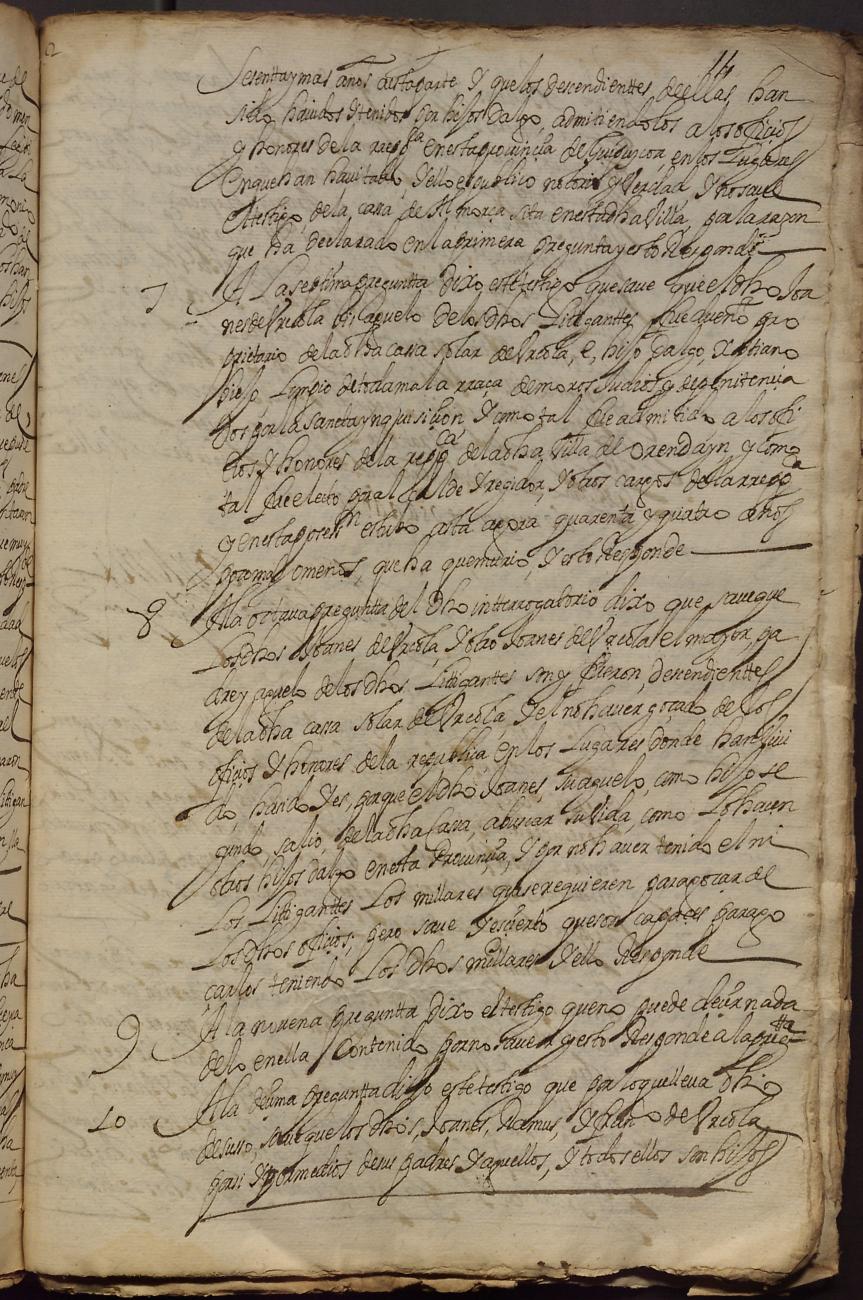 14
Sesenttaymas años aestaparte Y quelos descendienttes deellas han
sido havidos Ytenidos por hijos dalgo, admitiendolos alosoficios
y honores de la rrepca enestaprovincia deGuipuzcoa enlos Lugares
enquehan havitado, Yello espublico notorio Yverdad Ynosave
eltestigo, dela, cassa de sita enestadhaVilla, porlarraçon
que ha declarado enlaprimera preguntayesto Responde
7 A laseptima preguntta dixo estetestigo quesave queeldho Joa
nesdeUrcola bisaguelo delosdhos Litiganttes fuedueño pro
prietario deladha cassa solar deUrcola, e, hijo dalgo Xptiano
biejo Limpio detodamala rraça demorosJudios y depenitencia
dos porlasanctaynquisicion, Ycomo tal fueadmitido alosofi
cios Yhonores dela repca deladha Villa de Orendayn y como
tal fueelecto poral calde Yregidor, Yotros cargos dellarrepca
yenestaposesn estubo asta agora quarenta y quatro años
pocomasomenos, queha quemurio, Yesto Responde
8 Ala octavapreguntta del dho intterrogatorio dixo que saveque
Losdhos Joanes deUrcola, Yotro Joanes deUrcola elmayor, pa
drey aguelo delosdhos Litiganttes son y fueron, descendienttes
deladha cassa solar deUrcola, Yelnohaver goçado delos
oficios Yhonores dela republica enlos Lugares donde hanvivi
do, hasido Yes, porque eldho Joanes, suaguelo, como hijo se
gundo salio, deladhaCassa, abuscar suVida, como Lohacen
otros hijos dalgo enesta Provinçia, Y por nohaver tenido el ni
Los Litiganttes Los millares queserequieren paragozar de
Losdhos oficios, pero save Yescierto queson capaces parago
carlos teniendo Los dhos millares Yello Responde
9 A la novena preguntta dixo eltestigo queno puede decirnada
delo enella Contenido pornosaver yesto Responde alaprettª
10 Ala deçima preguntta dixo estetestigo que por loquelleva dho
desusso, savequelosdhos, Joanes, Ramus, Yfranco deUrcola,
porsi Ypormedios desus padres Yaguellos, Ytodosellos son hijos